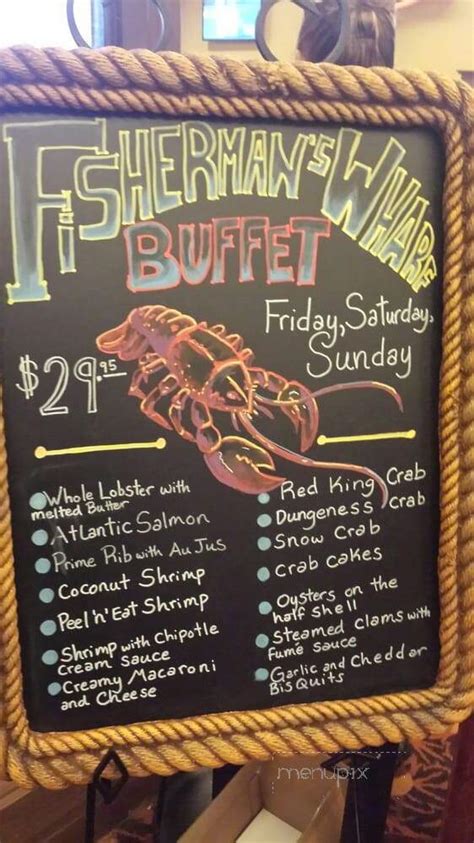 Fisherman's Wharf
Buffet
Friday, Saturday,
Sunday
$29.95
Whole Lobster with
melted Butter
Atlantic Salmon
Prime Rib with Au Jus
Coconut Shrimp
Peel 'n' Eat Shrimp
Shrimp with Chipotle
Cream Sauce
Creamy Macaroni
and Cheese
Red King Crab
Dungeness Crab
Snow Crab
Crab Cakes
Oysters on the
half Shell
Steamed Clams with
Fumé Sauce
Garlic and Cheddar
BisQuits
menupix